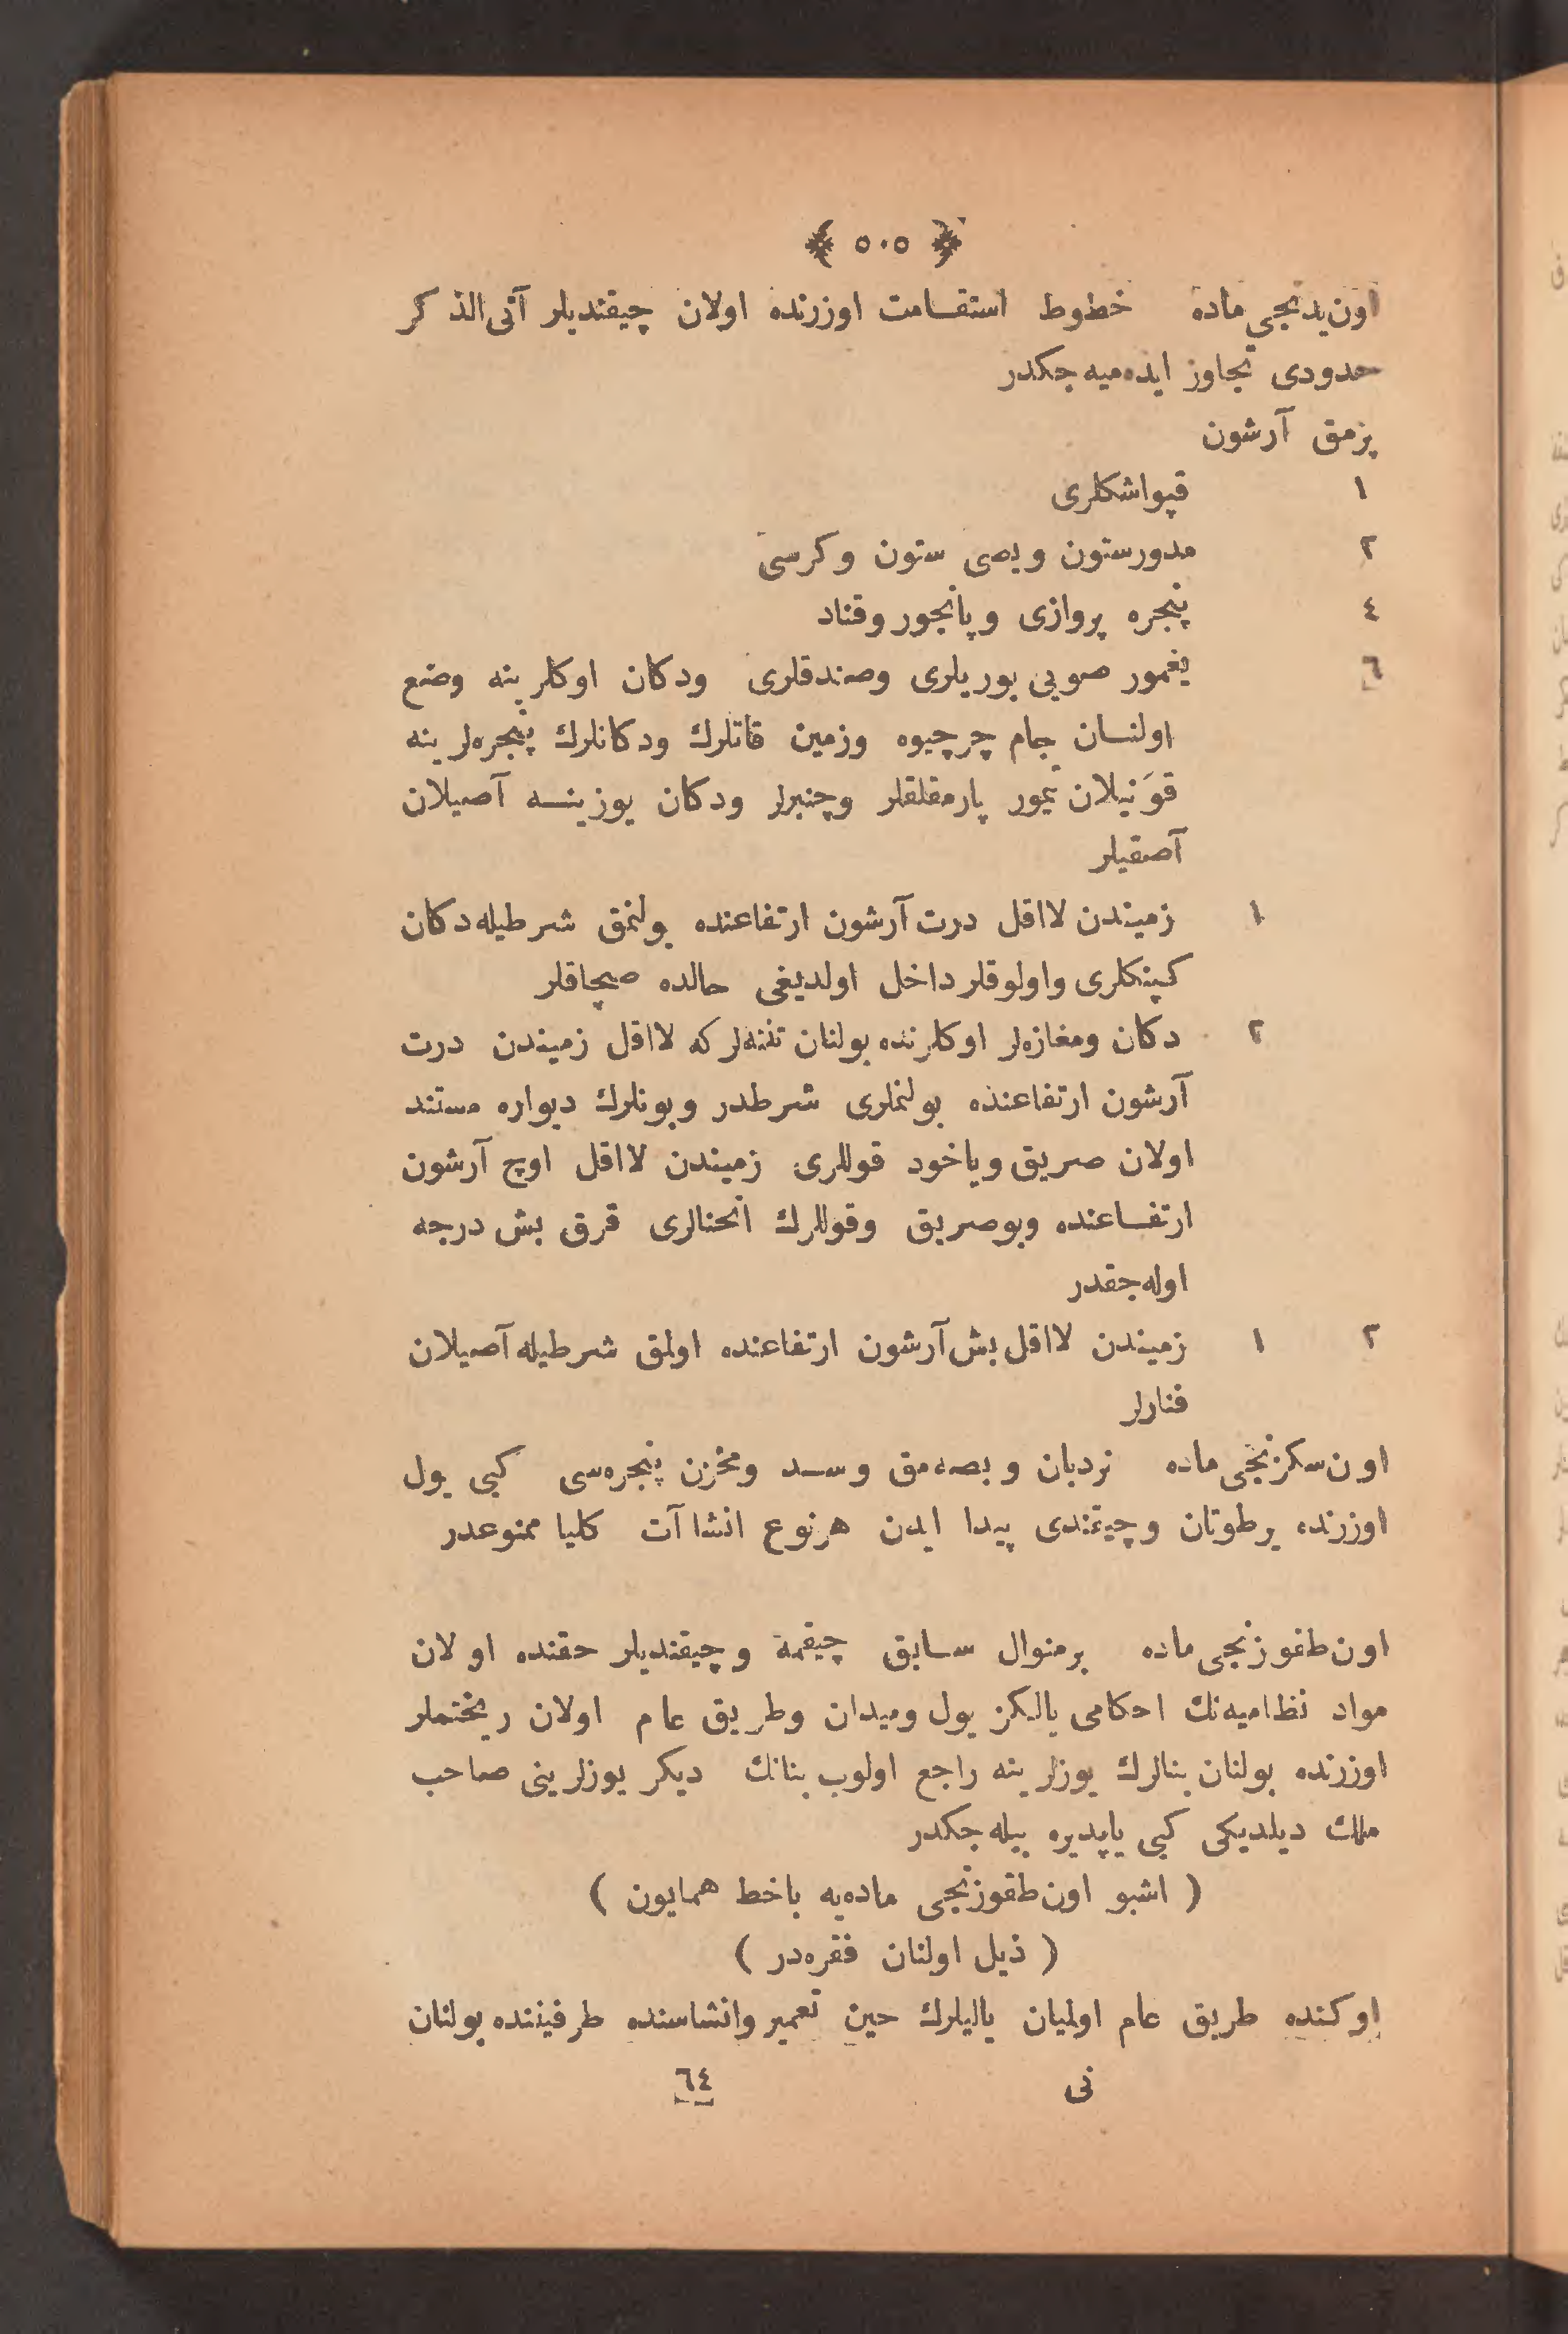 ﴿ ٥٠٥ ﴾
اون‌یدنجی ماده خطوط استقامت اوزرنده اولان چیقندیلر آتی‌الذکر
حدودی تجاوز ایده‌میه‌جکدر
پرمق آرشون
١ قپواشکلری
٢ مدورستون و بصی ستون و کرسی
٤ پنجره پروازی و پانجور وقناد
٦ یغمور صویی بوریلری وصندقلری ودکان اوکلرینه وضع
اولنان جام چرچیوه وزمین قاتلرك ودکانلرك پنجره‌لرینه
قوَنیلان تیمور پارمقلقلر وچنبرلر ودکان یوزینه آصیلان
آصقیلر
١ زمیندن لااقل درت آرشون ارتفاعنده بولنمق شرطیله دکان
کپنکلری واولوقلر داخل اولدیغی حالده صچاقلر
٢ دکان ومغازه‌لر اوکلرنده بولنان تنته‌لر که لااقل زمیندن درت
آرشون ارتفاعنده بولنملری شرطدر وبونلرك دیواره مستند
اولان صریق ویاخود قوللری زمیندن لااقل اوچ آرشون
ارتفاعنده وبوصریق وقوللرك انحنالری قرق بش درجه
اوله‌جقدر
٢ ١ زمیندن لااقل بش آرشون ارتفاعنده اولمق شرطیله آصیلان
فنارلر
اون‌سکزنجی ماده نردبان و بصه‌مق و سد ومخزن پنجره‌سی کبی یول
اوزرنده یرطوتان وچیقندی پیدا ایدن هرنوع انشاآت کلیا ممنوعدر
اون‌طقوزنجی ماده برمنوال سابق چیقمه وچیقندیلر حقنده اولان
مواد نظامیه‌نك احکامی یالکز یول ومیدان وطریق عام اولان ریختملر
اوزرنده بولنان بنالرك یوزلرینه راجع اولوب بنانك دیکر یوزلرینی صاحب
ملك دیلدیکی کبی یاپدیره بیله‌جکدر
( اشبو اون‌طقوزنجی ماده‌یه باخط همایون )
( ذیل اولنان فقره‌در )
اوکنده طریق عام اولمیان یالیلرك حین تعمیر وانشاسنده طرفیننده بولنان
نی ٦٤